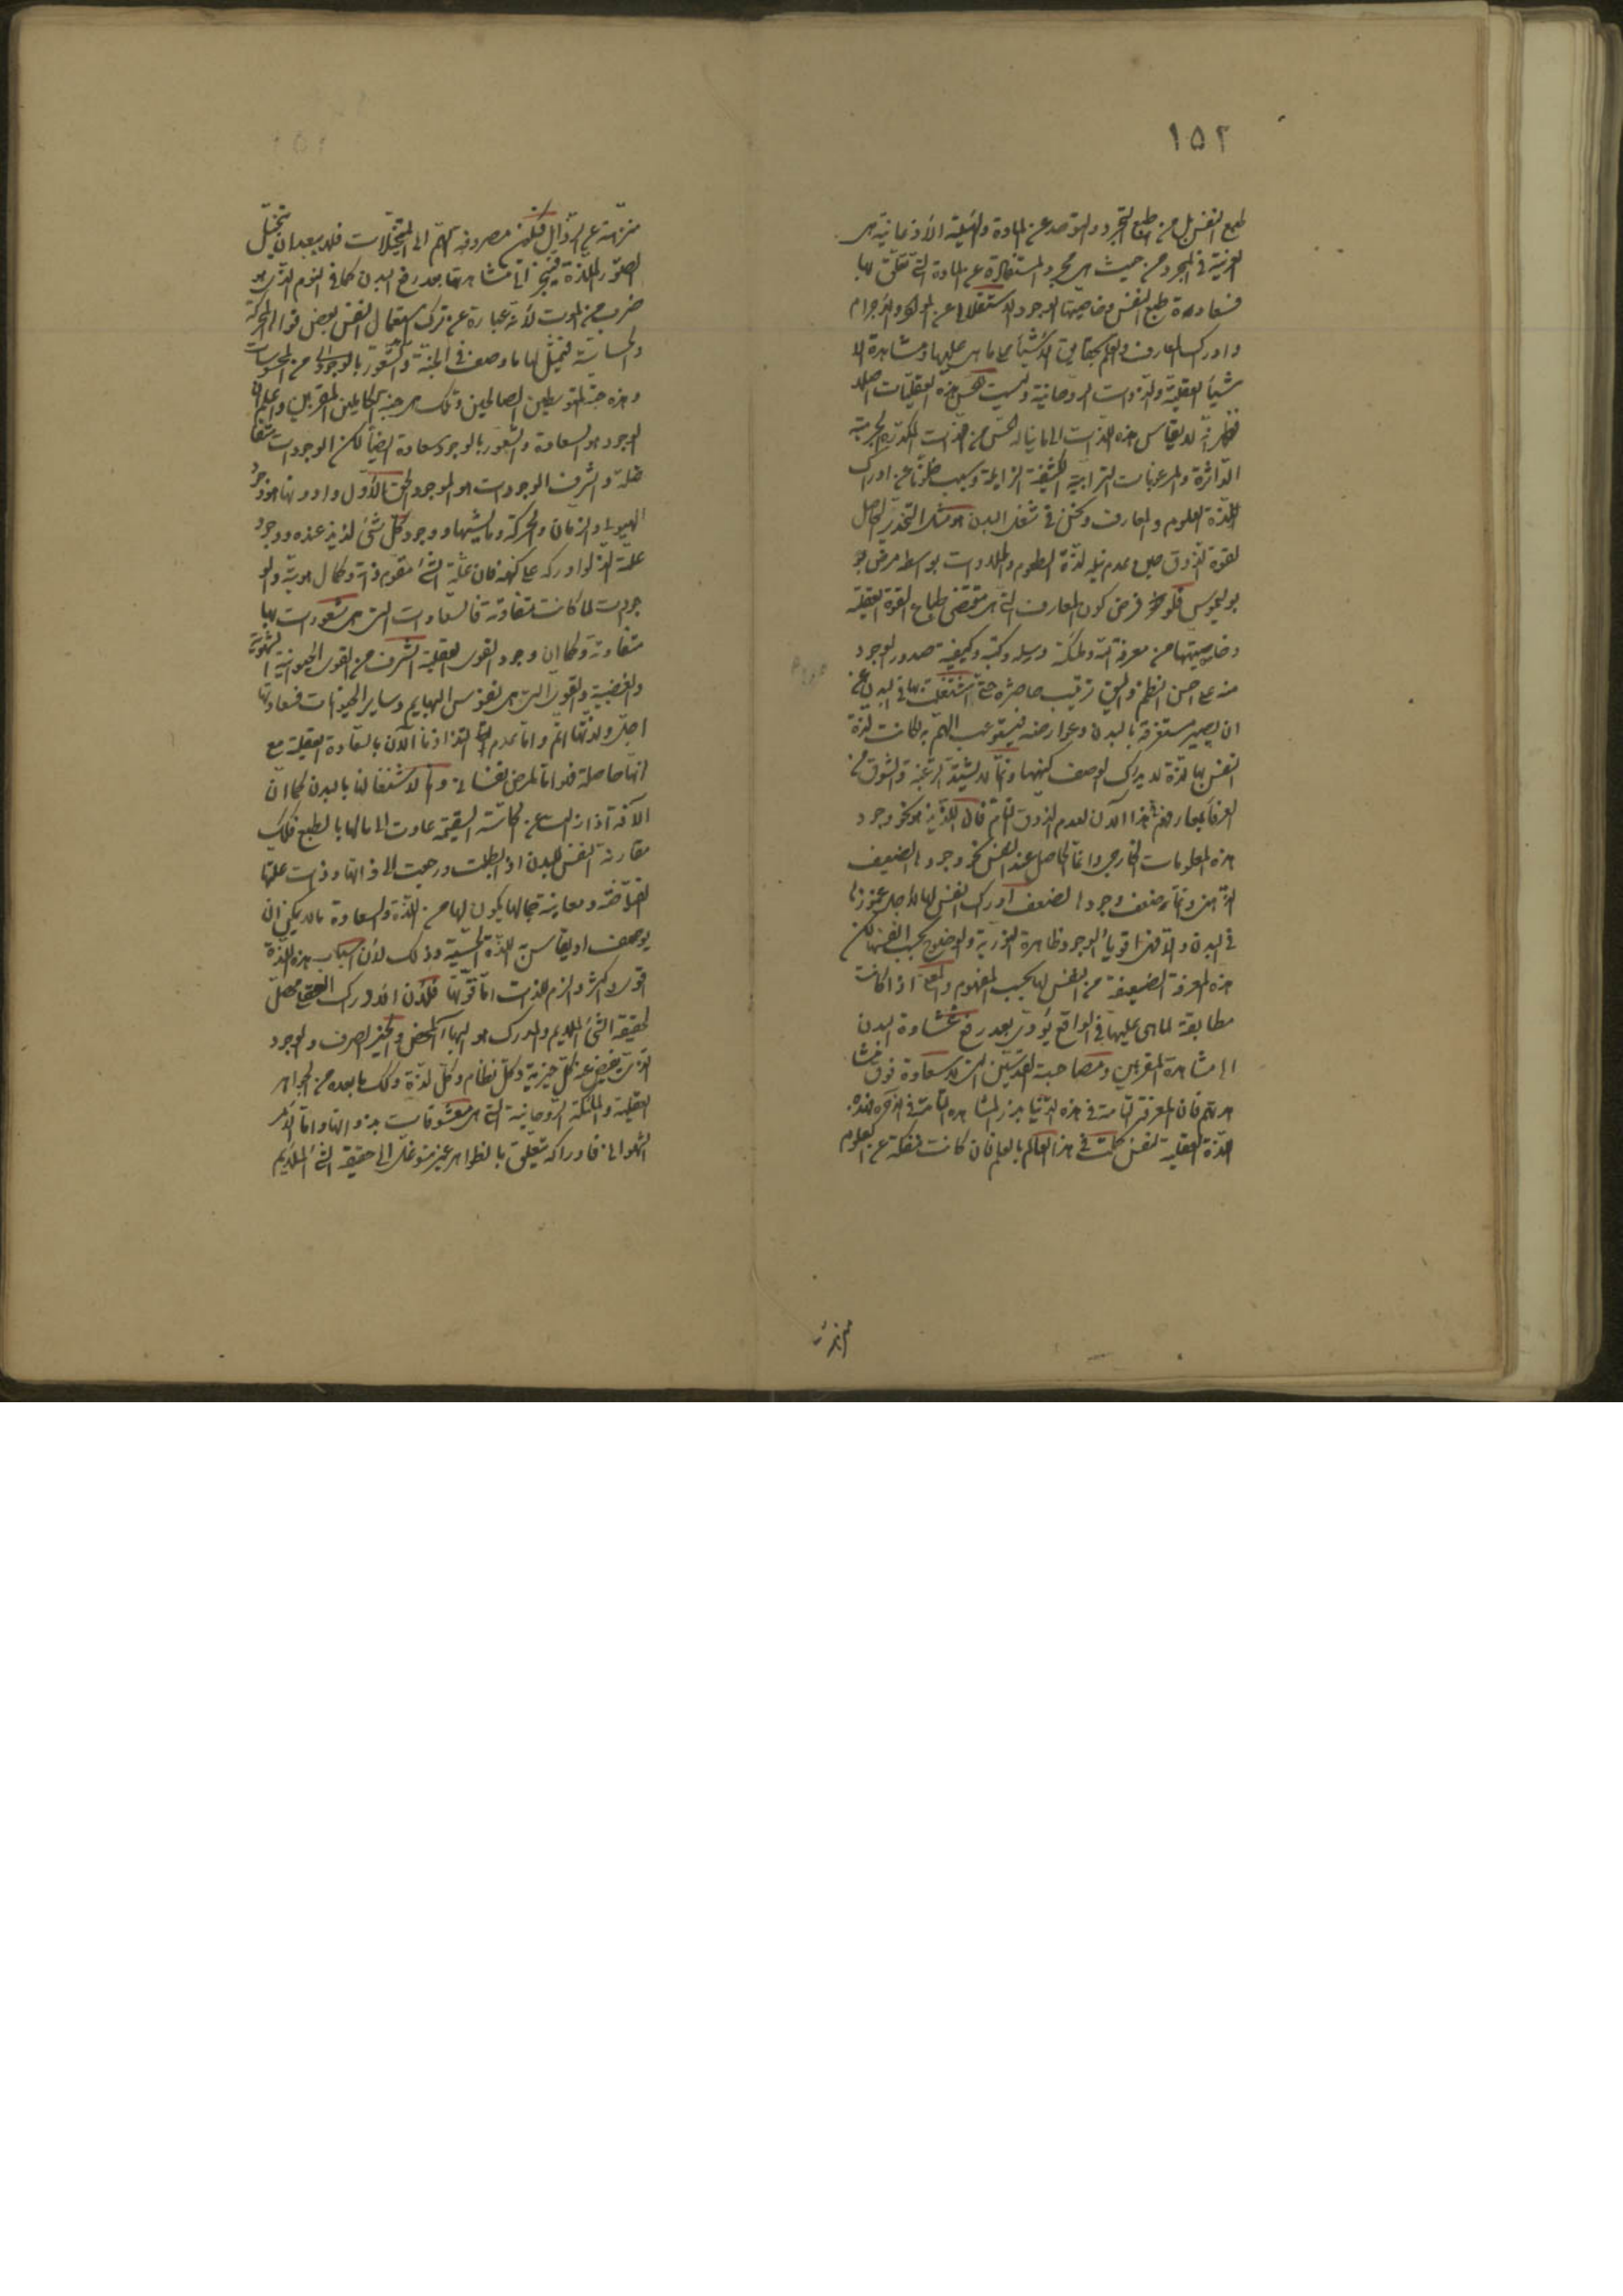 ١٥٢
طبع النفس بل من طباع التجرد والتوحد عن المادة والهيئة الأذعانية هى
الغريبة فى المجرد من حيث هى مجرد والمستفادة عن المادة التى تتعلق بها
فسعادة طبع النفس وخاصيتها الوجود الاستقلالى عن المواد والاجرام
وادراك المعارف والعلم بحقايق الاشياء على ما هى عليها ومشاهدة الا
شياء العقلية والذوات الروحانية وليست هذه العقليات اصلا
فظهر انه لا يقاس هذه اللذات الى ما يناله الحس من اللذات المكدرة الجرمية
الداثرة والمرغبات الترابية الكثيفة الزايلة وسبب خلونا عن ادراك
اللذة العلوم والمعارف ونحن فى شغل البدن هو مثل التخدير الحاصل
لقوة الذوق حين عدم نيله لذة الطعوم والحلاوات بواسطة مرض بو
بوليموس فلو فرض كون المعارف التى هى مقتضى طباع القوة العقلية
وخاصيتها من معرفة الله وملائكته ورسله وكتبه وكيفية صدور الوجود
منه على احسن النظم والترتيب حاضرة حتى اشتغلت بها فى البدن من غير
ان يصير مستغرقة بالبدن وعوارضه فيستوعب الهم به لكانت لذة
النفس بها لذة لا يدرك الوصف كنهها وانما لا يشتد الرغبة والشوق من
العرفاء بمعارفهم هذا الآن لعدم الذوق التام فان اللذيذ هو نحو وجود
هذه المعلومات الخارجى وانما الحاصل عند النفس نحو وجودها الضعيف
الذهنى وانما ضعف وجودها لضعف ادراك النفس لها لاجل غموزها
فى البدن والا فهى اقوياء الوجود ظاهرة النورية والوضوح بحسب انفسها لكن
هذه المعرفة الضعيفة من النفس لها بحسب المفهوم والمعنى اذا كانت
مطابقة لما هى عليها فى الواقع يؤدى بعد رفع غشاوة البدن
الى مشاهدة المقربين ومصاحبة القديسين التى لا سعادة فوق مشا
هدتهم فان المعرفة التامة فى هذه الدنيا بذر المشاهدة التامة فى الآخرة فهذه
اللذة العقلية لنفس كملت فى هذا العالم بالعلم فان كانت منفكة عن العلوم
منزهة عن الرذايل فيكون مصروفة الهم الى المتخيلات فلا يبعد ان يتخيل
الصور الملذة فينجر الى مشاهدتها بعد رفع البدن كما فى النوم الذى هو
ضرب من الموت لانه عبارة عن ترك استعمال النفس بعض قواها المحركة
والحساسة فتمثل لها ما وصف فى الجنة والشعور بالوجود من المحسوسات
وهذه جنة المتوسطين الصالحين وتلك هى جنة الكاملين المقربين واعلم ان
الوجود هو السعادة والشعور بالوجود سعادة ايضاً لكن الوجودات متفا
ضلة واشرف الموجودات هو الموجود الحق الاول وادونها هو وجود
الهيولى والزمان والحركة وما يشبهها ووجود كل شئ لذيذ عنده ووجود
علته الذ لو ادركه على كنهه فان علة الشئ مقوم ذاته وكمال هويته والو
جودات لما كانت متفاوتة فالسعادات التى هى شعورات بها
متفاوتة وكما ان وجود القوى العقلية اشرف من القوى الحيوانية الشهوية
والغضبية والقوى التى هى نفوس البهايم وساير الحيوانات فسعادتها
اجل ولذتها اتم واما عدم التذاذنا الآن بالسعادة العقلية مع
انها حاصلة فلو اما لمرض نفسانى واما لاشتغالنا بالبدن كما ان
الآفة اذا زالت عن الحاسة السقيمة عادت الى ما لها بالطبع فكذلك
مقارنة النفس للبدن اذا بطلت ورجعت الى ذاتها وذات علتها
الفياضة ومعاينة جمالها يكون لها من اللذة والسعادة ما لا يمكن ان
يوصف او يقاس به اللذة الحسية وذلك لان اسباب هذه اللذة
اقوى واكثر والزم للذات اما قوتها فلان الادراك العقلى محصل
لحقيقة الشئ الملايم والمدرك هو البهاء المحض والخير الصرف والوجود
الذى يفيض عنه كل خيرية وكل نظام وكل لذة وكذلك ما بعده من الجواهر
العقلية والملئكة الروحانية التى هى معشوقات بذواتها واما الامر
الشهوانى فادراكه متعلق بالظواهر غير متوغل الى حقيقة الشئ الملايم